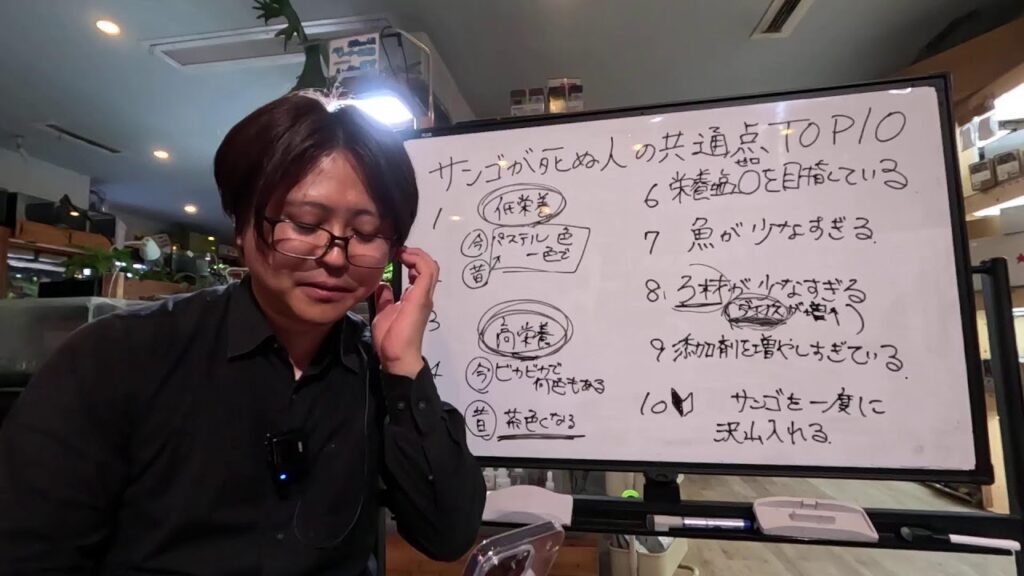 サンゴが死ぬ人の共通点TOP10
1
低栄養
今 パステル色
昔 一色で
3
高栄養
4
今 ピカピカで
何色もある
昔 茶色くなる
6 栄養塩0を目指している
7 魚が少なすぎる
8. ろ材が少なすぎる
が増やす
9 添加剤を増やしすぎている
10 サンゴを一度に
沢山入れる